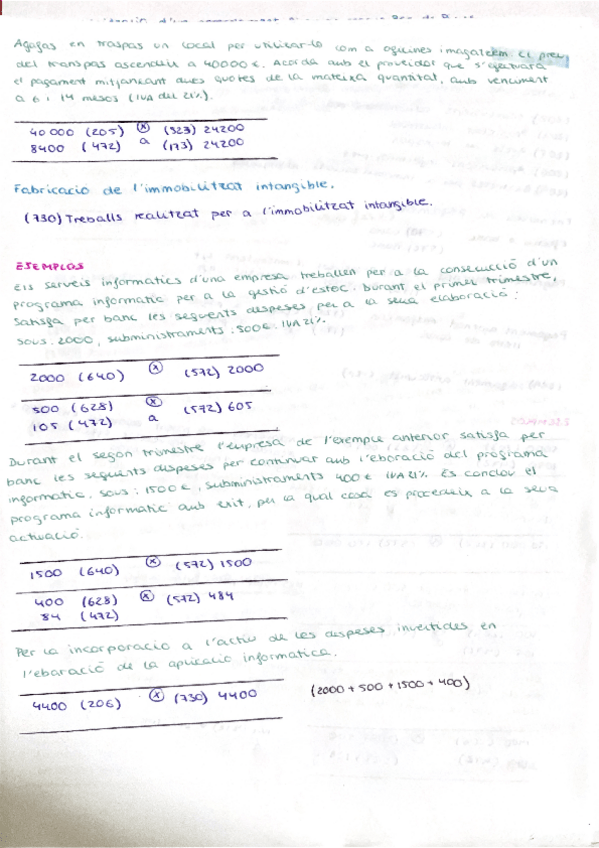 Agafas en traspas un local per utilitzar-lo com a oficines i magatzem. El preu
del transpas ascendeix a 40000 €. Acorda amb el proveidor que s'efectuarà
el pagament mitjançant dues quotes de la mateixa quantitat, amb venciment
a 6 i 14 mesos (IVA del 21%).
40 000 (205) ⓧ (523) 24200
8400 (472) a (173) 24200
Fabricació de l'immobilitzat intangible.
(730) Treballs realitzat per a l'immobilitzat intangible.
ESEMPLOS
Els serveis informatics d'una empresa treballen per a la consecució d'un
programa informatic per a la gestió d'estoc. Durant el primer trimestre,
satisfa per banc les seguents despeses per a la seua elaboració:
sous: 2000, subministraments: 500€. IVA 21%.
2000 (640) ⓧ (572) 2000
500 (628) ⓧ (572) 605
105 (472) a
Durant el segon trimestre l'empresa de l'exemple anterior satisfa per
banc les seguents dispeses per continuar amb l'eboració del programa
informatic. sous: 1500 €, subministraments 400 € IVA 21%. Es conclou el
programa informatic amb exit, per la qual cosa es procedeix a la seua
actuació.
1500 (640) ⓧ (572) 1500
400 (628) ⓧ (572) 484
84 (472)
Per la incorporació a l'actiu de les despeses invertides en
l'ebaració de la aplicació informatica.
4400 (206) ⓧ (730) 4400 (2000 + 500 + 1500 + 400)